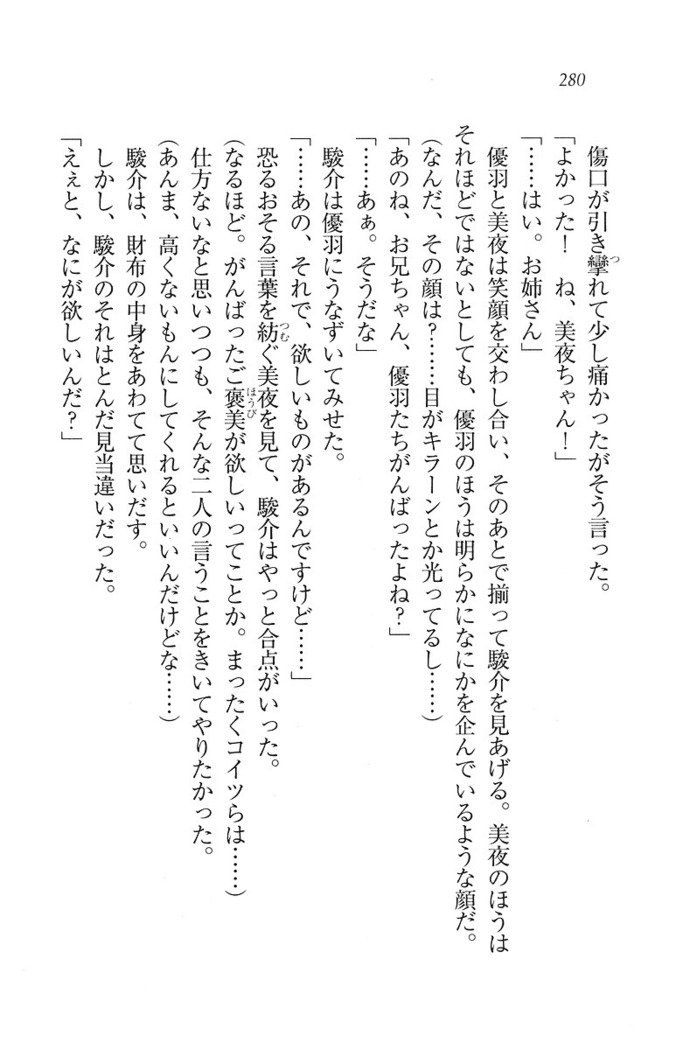 280
傷口が引き攣れて少し痛かったがそう言った。
「よかった！　ね、美夜ちゃん！」
「……はい。お姉さん」
優羽と美夜は笑顔を交わし合い、そのあとで揃って駿介を見あげる。美夜のほうは
それほどではないとしても、優羽のほうは明らかになにかを企んでいるような顔だ。
（なんだ、その顔は？……目がキラーンとか光ってるし……）
「あのね、お兄ちゃん、優羽たちがんばったよね？」
「……あぁ。そうだな」
駿介は優羽にうなずいてみせた。
「……あの、それで、欲しいものがあるんですけど……」
恐るおそる言葉を紡ぐ美夜を見て、駿介はやっと合点がいった。
（なるほど。がんばったご褒美が欲しいってことか。まったくコイツらは……）
仕方ないなと思いつつも、そんな二人の言うことをきいてやりたかった。
（あんま、高くないもんにしてくれるといいんだけどな……）
駿介は、財布の中身をあわてて思いだす。
しかし、駿介のそれはとんだ見当違いだった。
「えぇと、なにが欲しいんだ？」